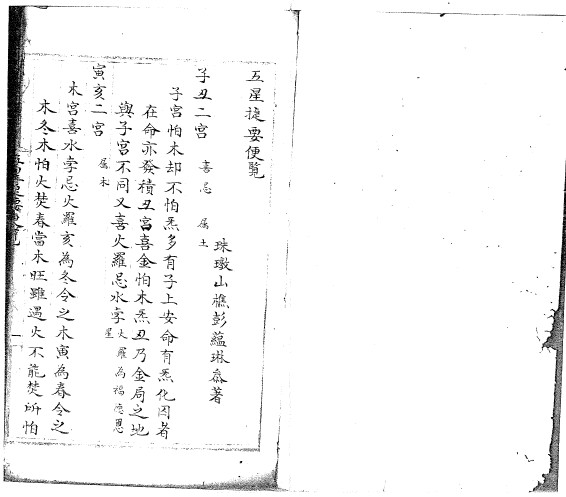 五星捷要便覽
珠璈山樵彭蘊琳叅著
子丑二宮 喜忌 属土
子宮怕木却不怕炁多有子上安命有炁化因者
在命亦發積丑宮喜金怕木炁丑乃金局之地
與子宮不同又喜火羅忌水孛火羅為福德恩星
寅亥二宮 属木
木宮喜水孛忌火羅亥為冬令之木寅為春令之
木冬木怕火焚春當木旺雖遇火不能焚所怕
五星捷要便覽
一